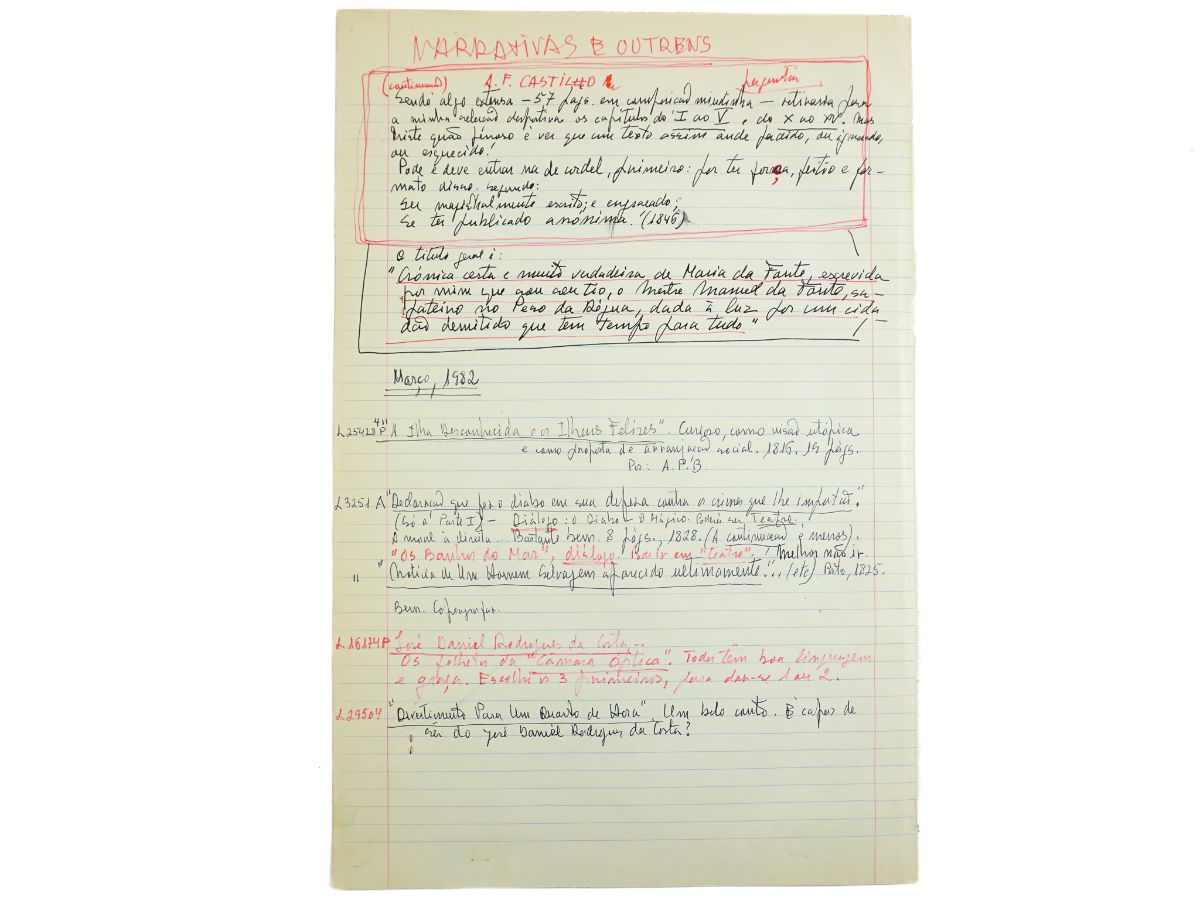 NARRATIVAS E OUTRENS
(continuação) A. F. CASTILHO perguntar
Sendo algo extensa — 57 págs. em composição miudinha — retiraria para
a minha selecção desportiva os capítulos do I ao V, e do X ao XV. Mas
triste quão penoso é ver que um texto assim ande perdido, ou ignorado,
ou esquecido!
Pode e deve entrar na de cordel, primeiro: por ter forma, feitio e for-
mato disso. segundo:
Ser magistralmente escrito; e engraçado;
Se ter publicado anónima. (1846)
O título geral é:
"Crónica certa e muito verdadeira de Maria da Fonte, escrevida
por mim que sou seu tio, o Mestre Manuel da Fonte, sa-
pateiro no Peso da Régua, dada à luz por um cida
dão demitido que tem tempo para tudo"
Março, 1982
L25428 P "A Ilha Desconhecida e os Ilheus Felizes". Curioso, como visão utópica
e como proposta de arranjação social. 1816. 19 págs.
Por: A.P.B.
L3251 A "Declaração que fez o diabo em sua defeza contra os crimes que lhe imputão."
(Só a Parte I) — Diálogo: O Diabo — O Mágico. Poderia ser Teatro.
A moral à direita... Bastante bem. 8 págs., 1828. (A continuação é menos).
"Os Banhos do Mar", diálogo. Pode ir em "teatro". ! Melhor não ir.
" "Noticia de Um Homem Selvagem aparecido ultimamente"... (etc) Porto, 1825.
Bem.
L.16174P José Daniel Rodrigues da Costa...
Os folhetos da "Câmara Óptica". Todos têm boa linguagem
e graça. Escolhi os 3 primeiros, para dar-se 1 ou 2.
L29504 "Divertimento Para Um Quarto de Hora". Um belo conto. É capaz de
ser do José Daniel Rodrigues da Costa?